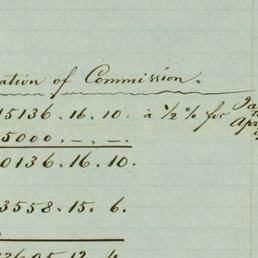 ation of Commission.
15136.16.10. à ½ % for
5000.—.—.
0136.16.10.
3558.15.6.